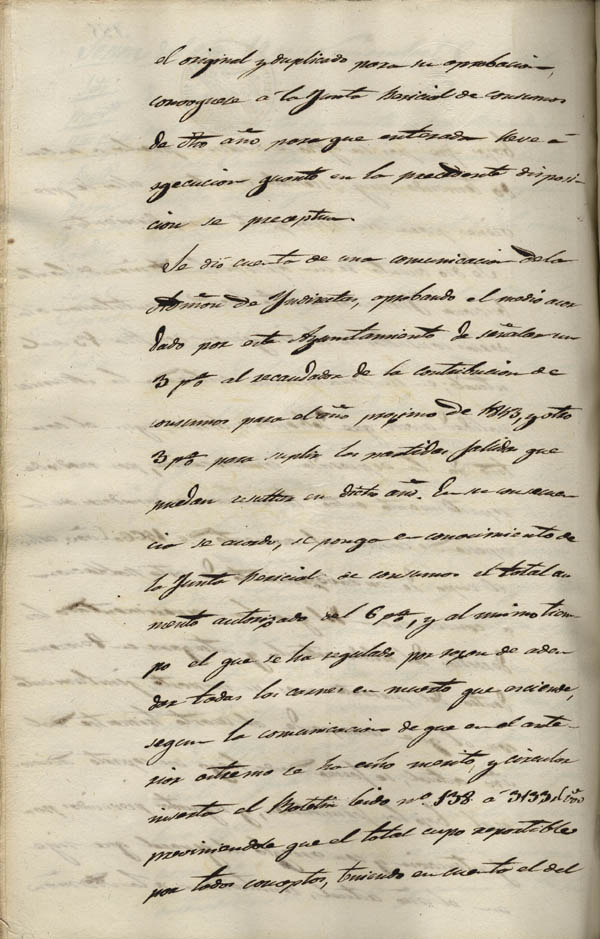 el original y duplicado para su aprobacion,
comoquese á la Junta Pericial de consumos
de dho año para que enterada lleve á
egecucion cuanto en la precedente disposi-
cion se preceptua.
Se dió cuenta de una comunicacion de la
Admōn de Indirectas, aprobando el medio acor
dado por este Ayuntamiento de señalar un
3 p% al recaudador de la contribucion de
consumos para el año proximo de 1843, y otro
3 p% para suplir las partidas fallidas que
puedan resultar en dicho año. En su consecuen
cia se acordó, se ponga en conocimiento de
la Junta Pericial de consumos el total au
mento autorizado del 6 p%, y al mismo tiem-
po el que se ha regulado por razon de adeu
dar todas las carnes en muerto que asciende,
segun la comunicacion de que en el ante-
rior extremo se ha echo merito, y circular
inserta el Boletin leido nº. 138 á 3133
previniendole que el total cupo repartible
por todos conceptos, teniendo en cuenta el del